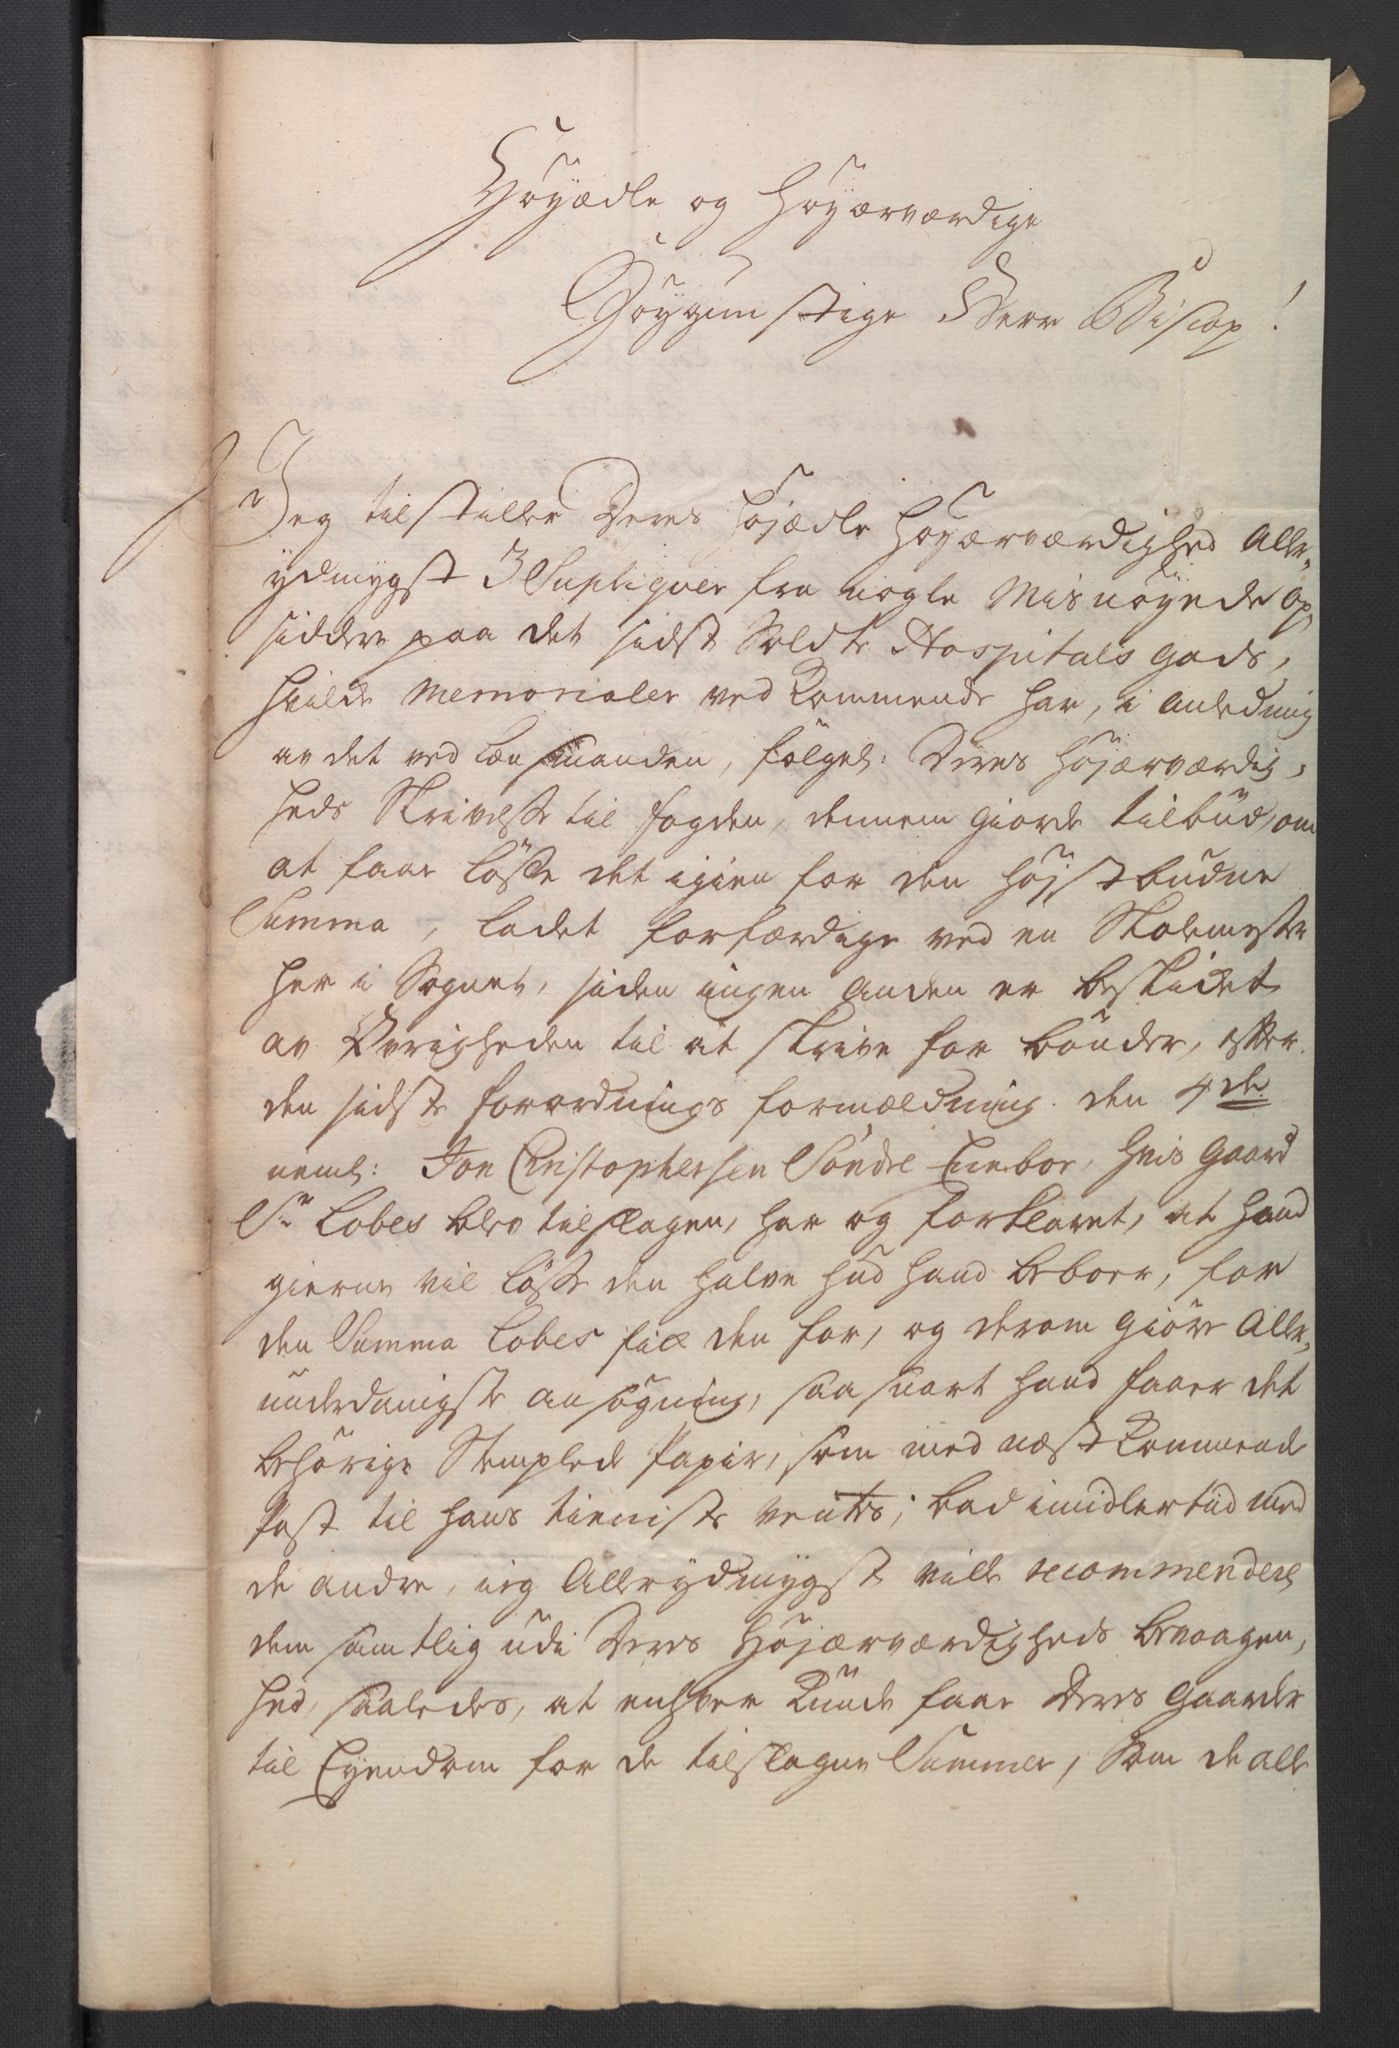 Høyædle og Høyærværdige
Høygunstige Herr Biscop!
Jeg tilstiller Deres Højædle Høyærværdighed Aller-
ydmygst 3 Supliqver fra nogle Misnøyede Op-
siddere paa det sidst Soldte Hospitals Gods,
hvilke Memorialer vedkommende har, i anledning
av det ved Lænsmanden, følgel: Deres Højærværdig-
heds Skrivelse til fogden, dennem giorde tilbud, om
at faae løsse det igien for den højstbudne
Summa, ladet forfærdige ved en Skolemester
her i Sognet, siden ingen anden er beskicket
av Øvrigheden til at skrive for bønder, efter
den sidste forordnings formældning. den 4de
neml: Jon Christophersen Søndre Eneboe, hvis Gaard
Sr. Lobes blev tilslagen, har og forklaret, at hand
gierne vil løsse den halve hud hand beboer, for
den Summa Lobes fik den for, og derom giøre Aller-
underdanigste ansøgning, saa snart hand faaer det
behørige Stemplede Papir, som med næstkommende
Post til hans tieniste ventes; bad imidlertiid med
de andre, ieg Allerydmygst ville recommendere
dem samtlig udi Deres Højærværdigheds bevaagen-
hed, saaledes, at enhver kunde faae Deres Gaarder
til Eyendom for de tilslagne Summer, som de alle